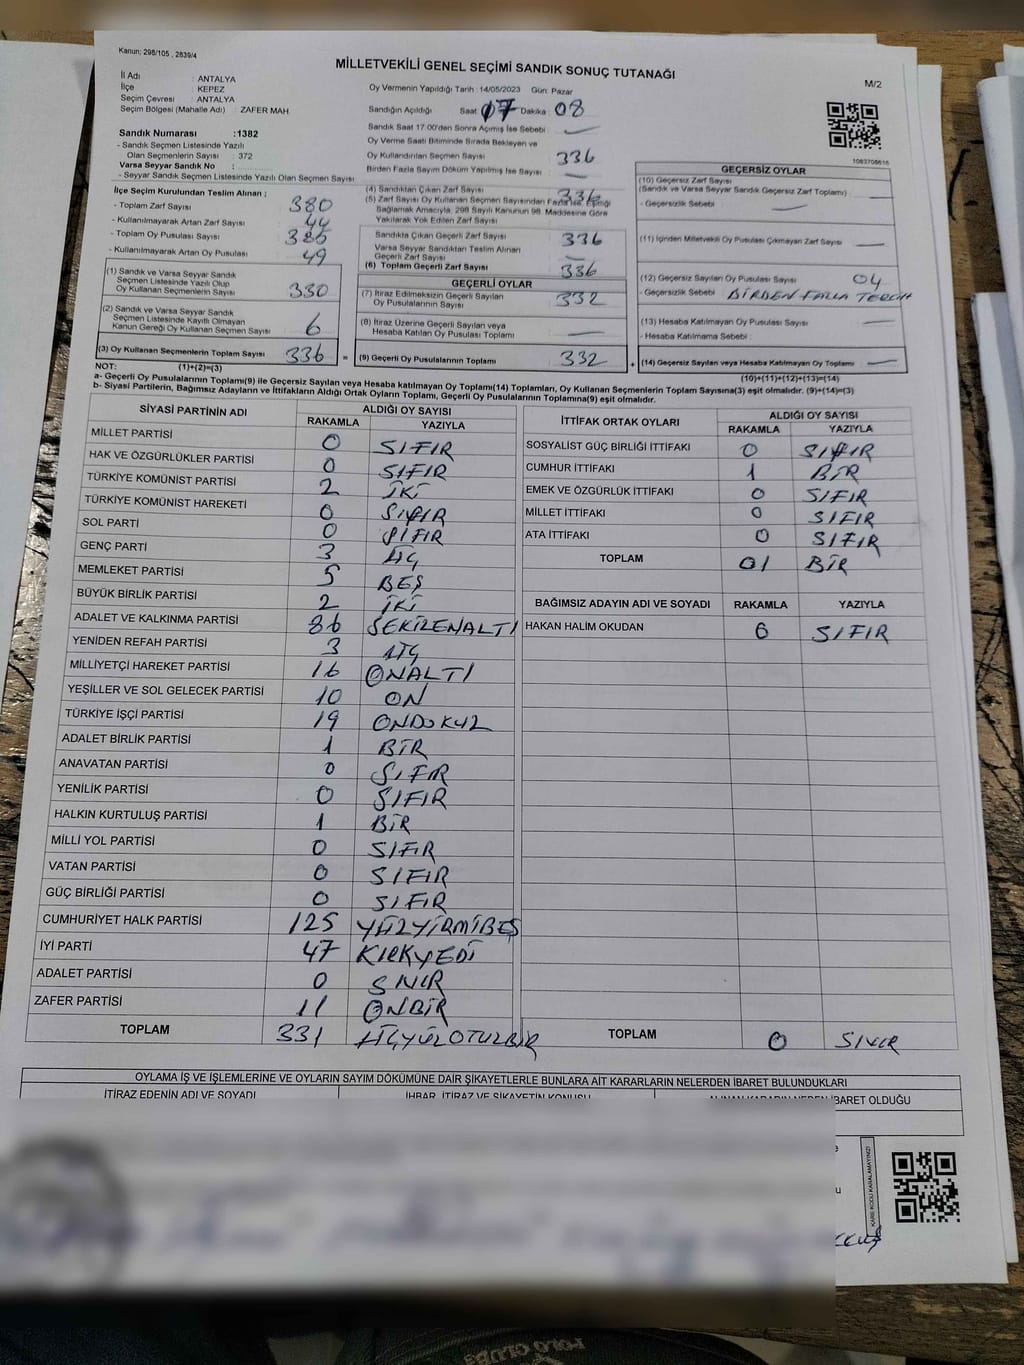 Kanun; 298/105 , 2839/4
MİLLETVEKİLİ GENEL SEÇİMİ SANDIK SONUÇ TUTANAĞI
M/2
İl Adı : ANTALYA
İlçe : KEPEZ
Seçim Çevresi : ANTALYA
Seçim Bölgesi (Mahalle Adı) : ZAFER MAH
Oy Vermenin Yapıldığı Tarih :14/05/2023 Gün: Pazar
Sandığın Açıldığı Saat 17 Dakika 08
Sandık Saat 17:00'den Sonra Açımış İse Sebebi :
Oy Verme Saati Bitiminde Sırada Bekleyen ve
Oy Kullandırılan Seçmen Sayısı : 336
Birden Fazla Sayım Döküm Yapılmış İse Sayısı :
Sandık Numarası :1382
- Sandık Seçmen Listesinde Yazılı
Olan Seçmenlerin Sayısı : 372
Varsa Seyyar Sandık No :
- Seyyar Sandık Seçmen Listesinde Yazılı Olan Seçmen Sayısı :
İlçe Seçim Kurulundan Teslim Alınan ;
- Toplam Zarf Sayısı : 380
- Kullanılmayarak Artan Zarf Sayısı : 44
- Toplam Oy Pusulası Sayısı : 385
- Kullanılmayarak Artan Oy Pusulası : 49
(1) Sandık ve Varsa Seyyar Sandık
Seçmen Listesinde Yazılı Olup
Oy Kullanan Seçmenlerin Sayısı : 330
(2) Sandık ve Varsa Seyyar Sandık
Seçmen Listesinde Kayıtlı Olmayan
Kanun Gereği Oy Kullanan Seçmen Sayısı : 6
(3) Oy Kullanan Seçmenlerin Toplam Sayısı : 336
(4) Sandıktan Çıkan Zarf Sayısı : 336
(5) Zarf Sayısı Oy Kullanan Seçmen Sayısından Fazla İse, Eşitliği
Sağlamak Amacıyla, 298 Sayılı Kanunun 98. Maddesine Göre
Yakılarak Yok Edilen Zarf Sayısı :
Sandıkta Çıkan Geçerli Zarf Sayısı : 336
Varsa Seyyar Sandıktan Teslim Alınan
Geçerli Zarf Sayısı :
(6) Toplam Geçerli Zarf Sayısı : 336
GEÇERLİ OYLAR
(7) İtiraz Edilmeksizin Geçerli Sayılan
Oy Pusulalarının Sayısı : 332
(8) İtiraz Üzerine Geçerli Sayılan veya
Hesaba Katılan Oy Pusulası Toplamı :
= (9) Geçerli Oy Pusulalarının Toplamı : 332
1083708616
GEÇERSİZ OYLAR
(10) Geçersiz Zarf Sayısı
(Sandık ve Varsa Seyyar Sandık Geçersiz Zarf Toplamı) :
- Geçersizlik Sebebi :
(11) İçinden Milletvekili Oy Pusulası Çıkmayan Zarf Sayısı :
(12) Geçersiz Sayılan Oy Pusulası Sayısı : 04
- Geçersizlik Sebebi : BİRDEN FAZLA TERCİH
(13) Hesaba Katılmayan Oy Pusulası Sayısı :
- Hesaba Katılmama Sebebi :
+ (14) Geçersiz Sayılan veya Hesaba Katılmayan Oy Toplamı :
NOT: (1)+(2)=(3)
(10)+(11)+(12)+(13)=(14)
a- Geçerli Oy Pusulalarının Toplamı(9) ile Geçersiz Sayılan veya Hesaba katılmayan Oy Toplamı(14) Toplamları, Oy Kullanan Seçmenlerin Toplam Sayısına(3) eşit olmalıdır. (9)+(14)=(3)
b- Siyasi Partilerin, Bağımsız Adayların ve İttifakların Aldığı Ortak Oyların Toplamı, Geçerli Oy Pusulalarının Toplamına(9) eşit olmalıdır.
SİYASİ PARTİNİN ADI ALDIĞI OY SAYISI
RAKAMLA YAZIYLA
MİLLET PARTİSİ 0 SIFIR
HAK VE ÖZGÜRLÜKLER PARTİSİ 0 SIFIR
TÜRKİYE KOMÜNİST PARTİSİ 2 İKİ
TÜRKİYE KOMÜNİST HAREKETİ 0 SIFIR
SOL PARTİ 0 SIFIR
GENÇ PARTİ 3 ÜÇ
MEMLEKET PARTİSİ 5 BEŞ
BÜYÜK BİRLİK PARTİSİ 2 İKİ
ADALET VE KALKINMA PARTİSİ 86 SEKİZENALTI
YENİDEN REFAH PARTİSİ 3 ÜÇ
MİLLİYETÇİ HAREKET PARTİSİ 16 ONALTI
YEŞİLLER VE SOL GELECEK PARTİSİ 10 ON
TÜRKİYE İŞÇİ PARTİSİ 19 ONDOKUZ
ADALET BİRLİK PARTİSİ 1 BİR
ANAVATAN PARTİSİ 0 SIFIR
YENİLİK PARTİSİ 0 SIFIR
HALKIN KURTULUŞ PARTİSİ 1 BİR
MİLLİ YOL PARTİSİ 0 SIFIR
VATAN PARTİSİ 0 SIFIR
GÜÇ BİRLİĞİ PARTİSİ 0 SIFIR
CUMHURİYET HALK PARTİSİ 125 YÜZYİRMİBEŞ
İYİ PARTİ 47 KIRKYEDİ
ADALET PARTİSİ 0 SIFIR
ZAFER PARTİSİ 11 ONBİR
TOPLAM 331 ÜÇYÜZOTUZBİR
İTTİFAK ORTAK OYLARI ALDIĞI OY SAYISI
RAKAMLA YAZIYLA
SOSYALİST GÜÇ BİRLİĞİ İTTİFAKI 0 SIFIR
CUMHUR İTTİFAKI 1 BİR
EMEK VE ÖZGÜRLÜK İTTİFAKI 0 SIFIR
MİLLET İTTİFAKI 0 SIFIR
ATA İTTİFAKI 0 SIFIR
TOPLAM 01 BİR
BAĞIMSIZ ADAYIN ADI VE SOYADI RAKAMLA YAZIYLA
HAKAN HALİM OKUDAN 0 SIFIR
TOPLAM 0 SIFIR
OYLAMA İŞ VE İŞLEMLERİNE VE OYLARIN SAYIM DÖKÜMÜNE DAİR ŞİKAYETLERLE BUNLARA AİT KARARLARIN NELERDEN İBARET BULUNDUKLARI
İTİRAZ EDENİN ADI VE SOYADI İHBAR, İTİRAZ VE ŞİKAYETİN KONUSU ALINAN KARARIN NEDEN İBARET OLDUĞU
KARE KODU KARALAMAYINIZ!
POLO CLUB